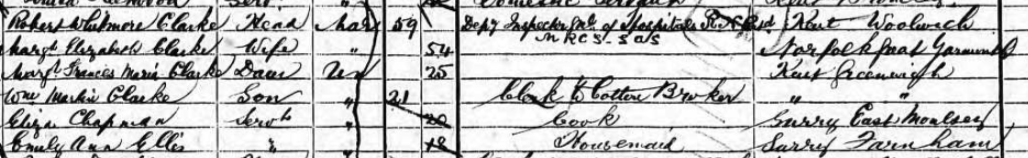 Robert Whitmore Clarke Head Mar 59 Depy Inspector Genl of Hospitals R.N. Kent Woolwich
Margt Elizabeth Clarke Wife " 54 M R C S - S A S Norfolk Great Yarmouth
Margt Frances Maria Clarke Daur Un 25 Kent Greenwich
Wm Martin Clarke Son " 21 Clerk to Cotton Broker " "
Eliza Chapman Servt " 20 Cook Surry East Moulsey
Emily Ann Ellis " 18 Housemaid Surry Farnham